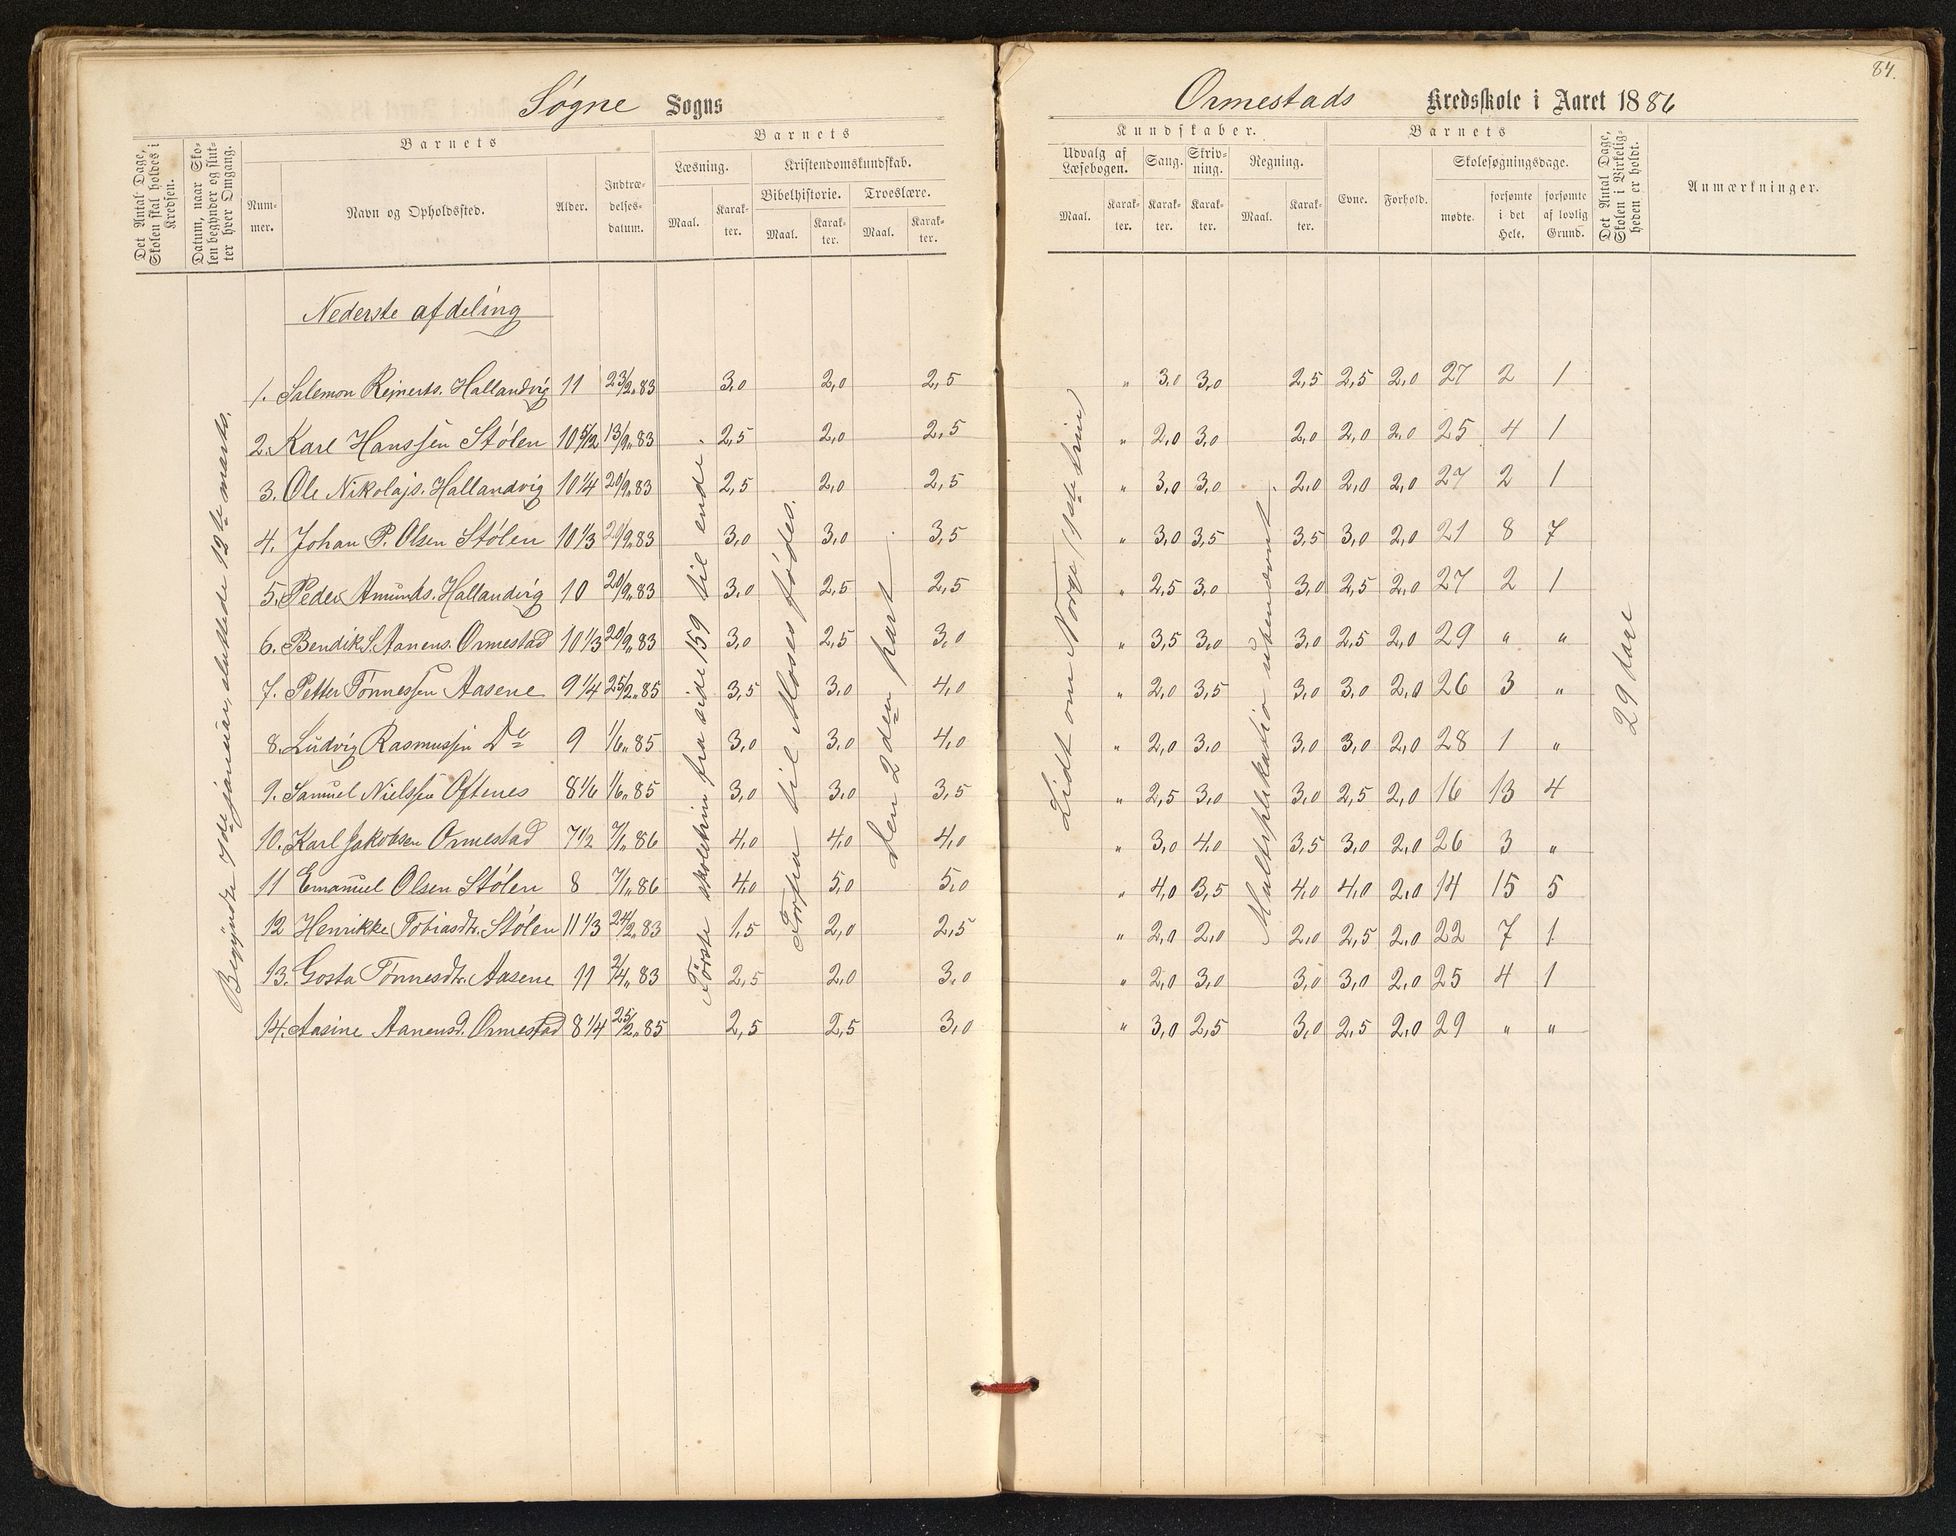 Søgne Sogns
Ormestads Kredsskole i Aaret 1886
84.
Det Antal Dage, Skolen skal holdes i Kredsen.
Datum, naar Skolen begynder og slutter hver Omgang.
Barnets
Nummer.
Navn og Opholdssted.
Alder.
Indtrædelsesdatum.
Barnets
Læsning.
Maal.
Karakter.
Kristendomskundskab.
Bibelhistorie.
Maal.
Karakter.
Troeslære.
Maal.
Karakter.
Kundskaber.
Udvalg af Læsebogen.
Maal.
Karakter.
Sang.
Karakter.
Skrivning.
Karakter.
Regning.
Maal.
Karakter.
Barnets
Evne.
Forhold.
Skolesøgningsdage.
mødte.
forsømte i det Hele.
forsømte af lovlig Grund.
Det Antal Dage, Skolen i Virkeligheden er holdt.
Anmærkninger.
Nederste afdeling
Begyndte 7de januar, sluttede 12te marts.
Første skoletrin fra side 159 til ende
Forfra til Moses fødes.
den 2den part
Lidt om Norge, 1ste trin
Multiplikation ubenævnt
29 dage
1. Salemon Rejnerts. Hallandvig 11 23/2 83 3,0 2,0 2,5 " 3,0 3,0 2,5 2,5 2,0 27 2 1
2. Karl Hanssen Stølen 10 5/12 13/9 83 2,5 2,0 2,5 " 2,0 3,0 2,0 2,0 2,0 25 4 1
3. Ole Nikolajs. Hallandvig 10 1/4 20/9 83 2,5 2,0 2,5 " 3,0 3,0 2,0 2,0 2,0 27 2 1
4. Johan P. Olsen Stølen 10 1/3 20/9 83 3,0 3,0 3,5 " 3,0 3,5 3,5 3,0 2,0 21 8 7
5. Peder Amunds. Hallandvig 10 20/9 83 3,0 2,5 2,5 " 2,5 3,0 3,0 2,5 2,0 27 2 1
6. Bendik S. Aanens. Ormestad 10 1/3 20/9 83 3,0 2,5 3,0 " 3,5 3,0 3,0 2,5 2,0 29 " "
7. Petter Tønnessen Aasene 9 1/4 25/2 85 3,5 3,0 4,0 " 2,0 3,5 3,0 3,0 2,0 26 3 "
8. Ludvig Rasmussen Do 9 1/6 85 3,0 3,0 4,0 " 2,0 3,0 3,0 3,0 2,0 28 1 "
9. Samuel Nielssen Oftenes 8 1/6 1/6 85 3,0 3,0 3,5 " 2,5 3,0 3,0 2,5 2,0 16 13 4
10. Karl Jakobsen Ormestad 7 1/2 7/1 86 4,0 4,0 4,0 " 3,0 4,0 3,5 3,0 2,0 26 3 "
11 Emanuel Olsen Stølen 8 7/1 86 4,0 5,0 5,0 " 4,0 3,5 4,0 4,0 2,0 14 15 5
12 Henrikke Tobiasdtr. Stølen 11 1/3 24/2 83 1,5 2,0 2,5 " 2,0 2,0 2,0 2,5 2,0 22 7 1
13. Gosta Tønnesdtr. Aasene 11 2/4 83 2,5 2,0 3,0 " 2,0 3,0 3,0 3,0 2,0 25 4 1
14. Aasine Aanensd. Ormestad 8 1/4 25/2 85 2,5 2,5 3,0 " 3,0 2,5 3,0 2,5 2,0 29 " "